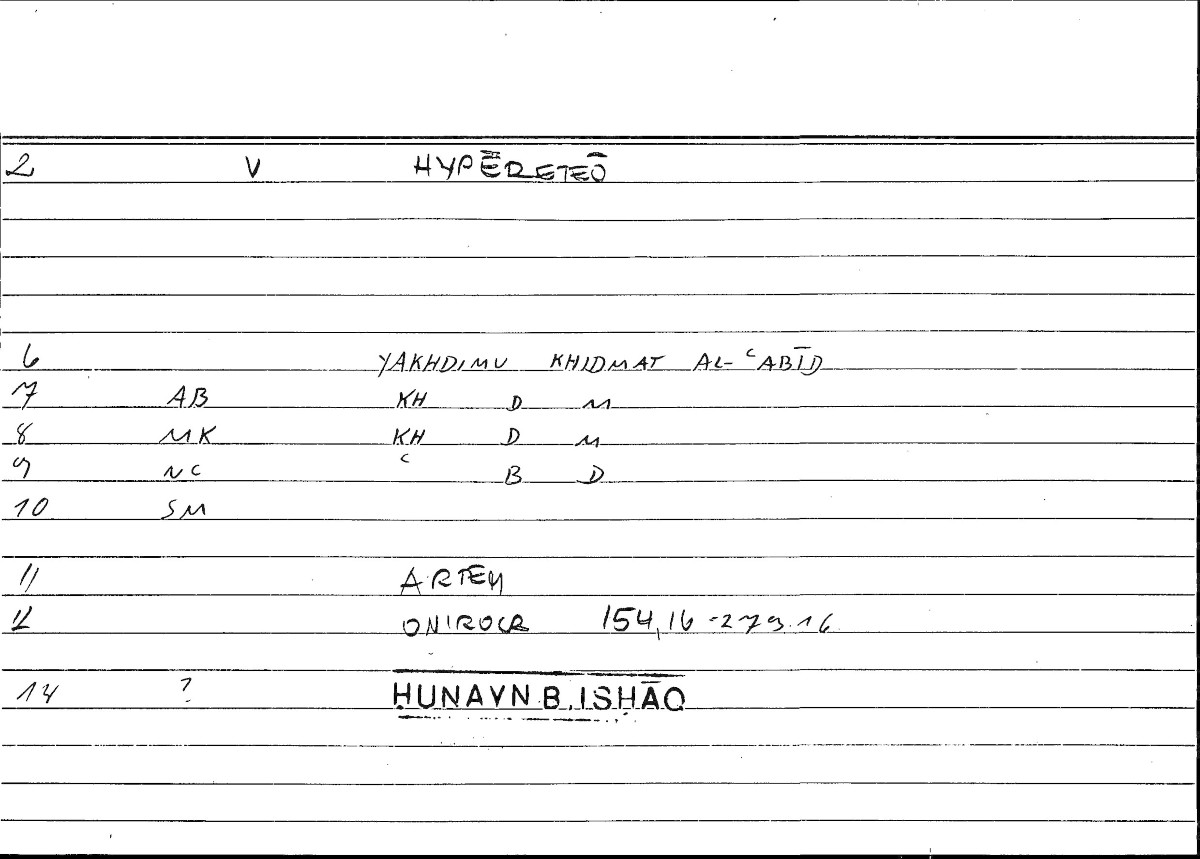 2 V HYPĒRETEŌ
6 YAKHDIMU KHIDMAT AL-ʿABĪD
7 AB KH D M
8 MK KH D M
9 NC ʿ B D
10 SM
11 ARTEM
12 ONIROCR 154,16-279.16
14 ? ḤUNAYN B. ISḤĀQ